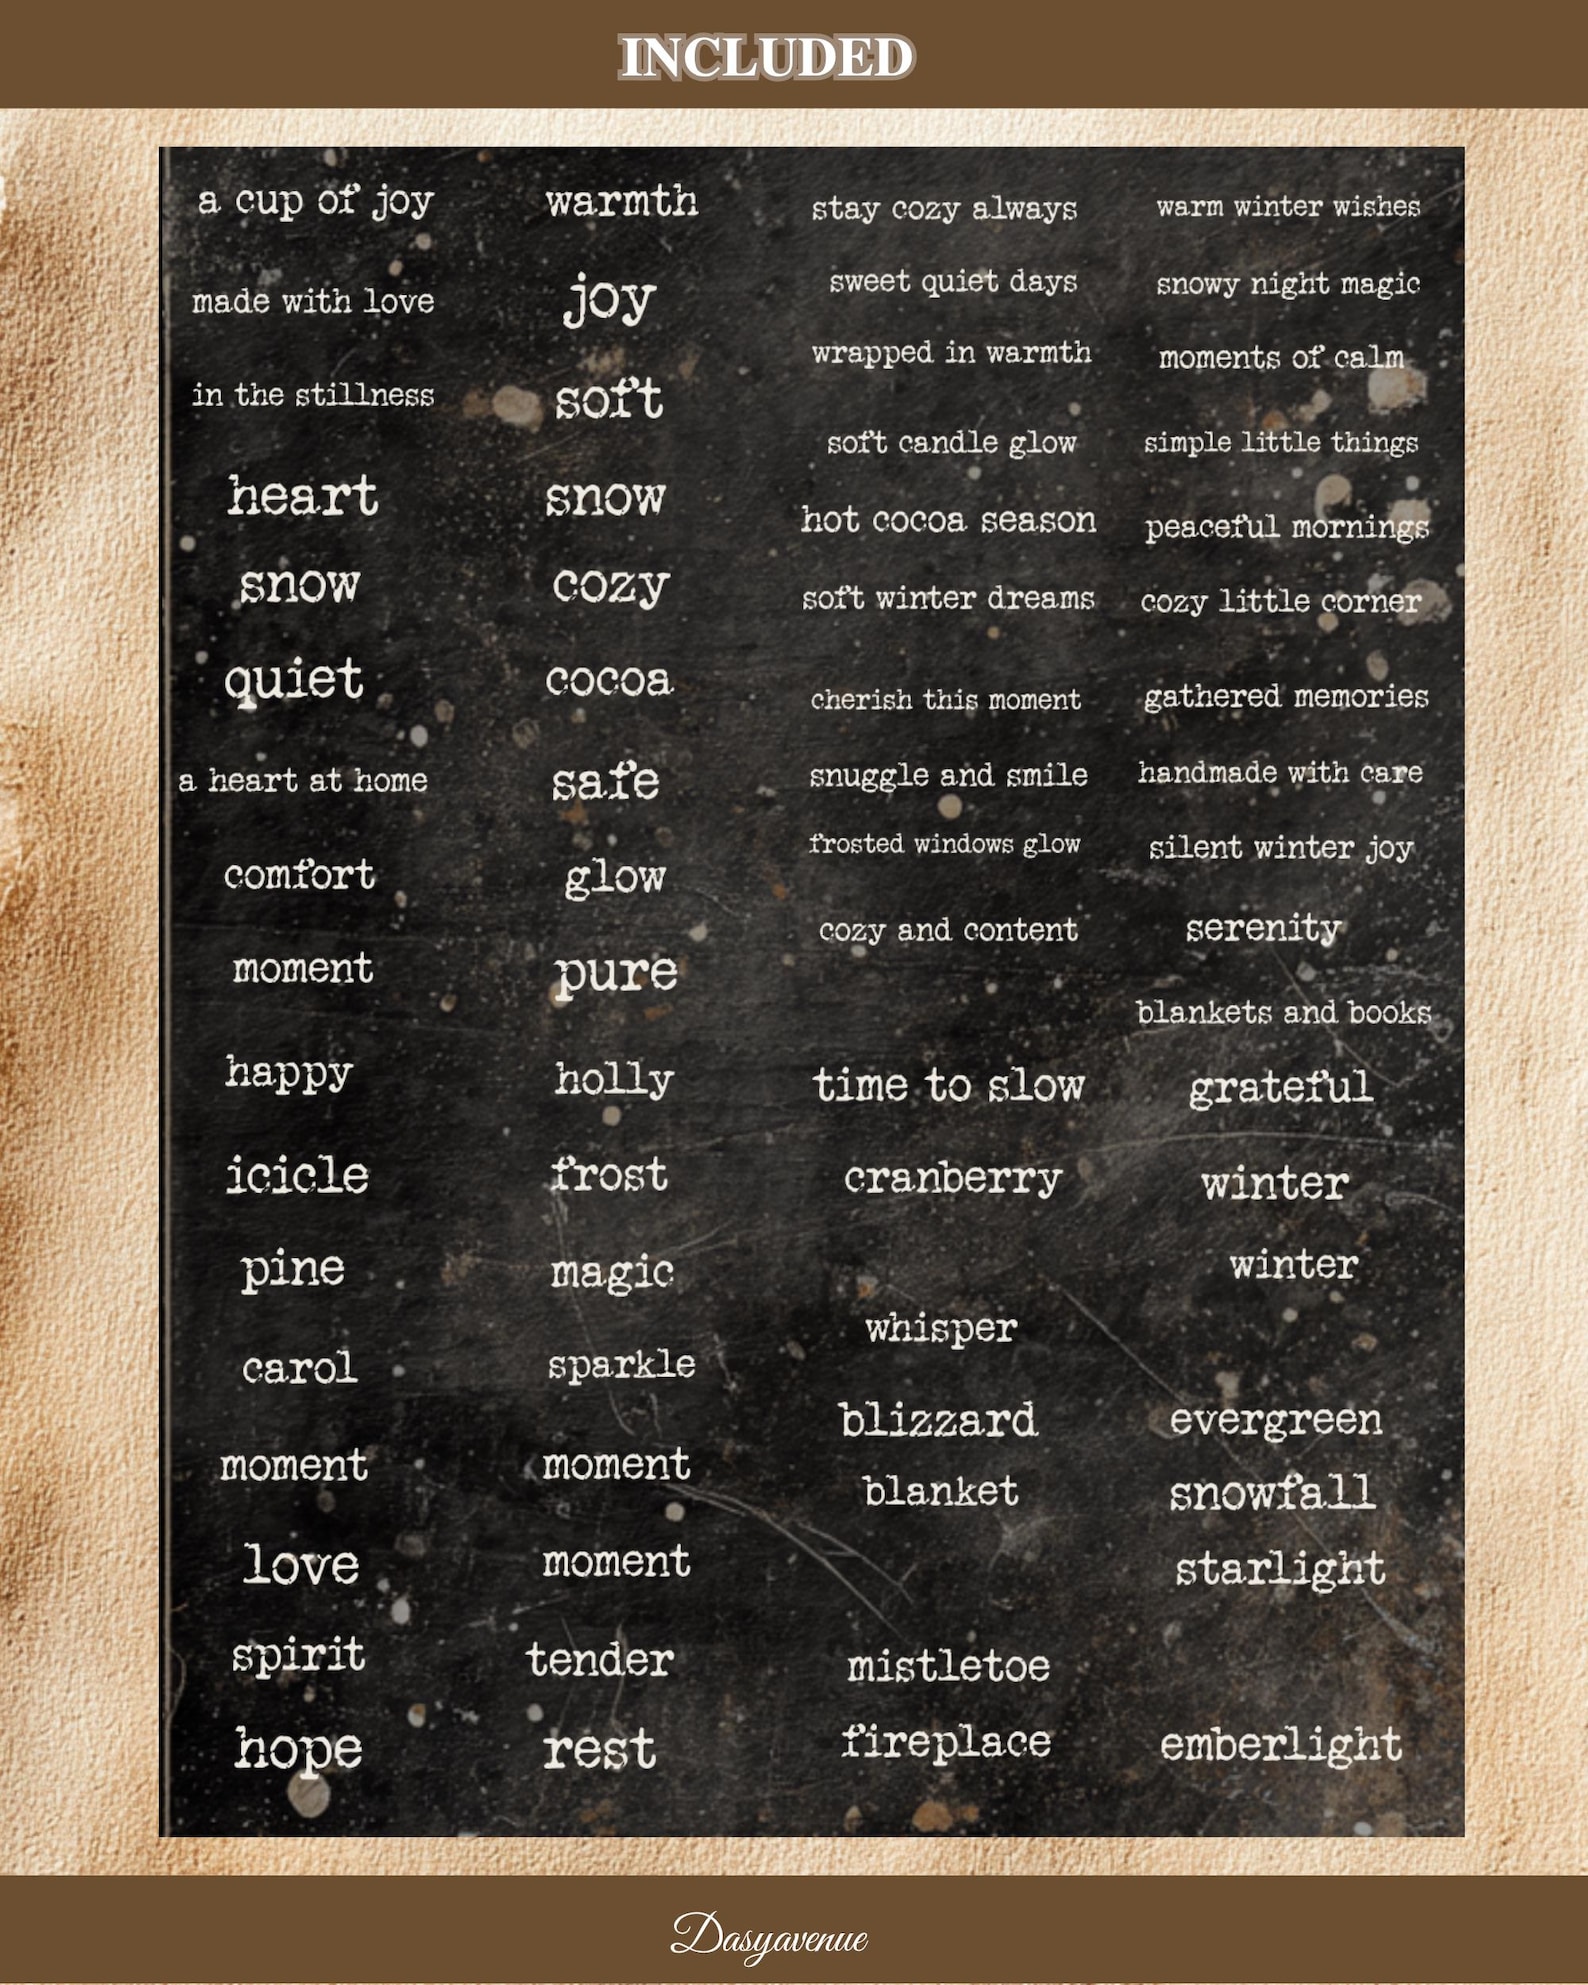 INCLUDED
a cup of joy
made with love
in the stillness
heart
snow
quiet
a heart at home
comfort
moment
happy
icicle
pine
carol
moment
love
spirit
hope
warmth
joy
soft
snow
cozy
cocoa
safe
glow
pure
holly
frost
magic
sparkle
moment
moment
tender
rest
stay cozy always
sweet quiet days
wrapped in warmth
soft candle glow
hot cocoa season
soft winter dreams
cherish this moment
snuggle and smile
frosted windows glow
cozy and content
time to slow
cranberry
whisper
blizzard
blanket
mistletoe
fireplace
warm winter wishes
snowy night magic
moments of calm
simple little things
peaceful mornings
cozy little corner
gathered memories
handmade with care
silent winter joy
serenity
blankets and books
grateful
winter
winter
evergreen
snowfall
starlight
emberlight
Dasyavenue